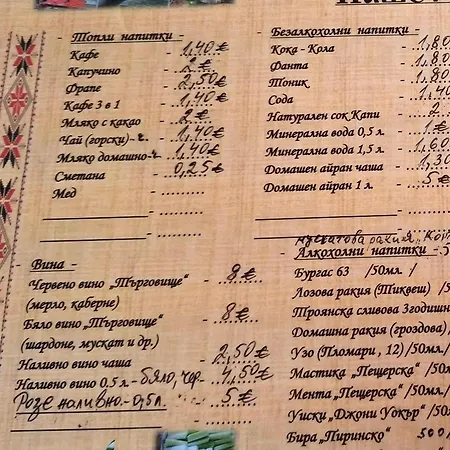 - Топли напитки -
Кафе - 1,40 €
Капучино - 2 €
Фрапе - 2,50 €
Кафе 3 в 1 - 1,40 €
Мляко с какао - 2 €
Чай (горски) - 1,40 €
Мляко домашно - 1,40 €
Сметана - 0,25 €
Мед -
- Вина -
Червено вино „Търговище" - 8 €
(мерло, каберне)
Бяло вино „Търговище" - 8 €
(шардоне, мускат и др.)
Наливно вино чаша - 2,50 €
Наливно вино 0.5 л - бяло, чер. - 4,50 €
Розе наливно - 0,5 л. - 5 €
- Безалкохолни напитки -
Кока - Кола - 1,80
Фанта - 1,80
Тоник - 1,80
Сода - 1,40
Натурален сок Капи - 2
Минерална вода 0,5 л. - 1 €
Минерална вода 1,5 л. - 1,60
Домашен айран чаша - 1,30
Домашен айран 1 л. - 5 €
ракия
- Алкохолни напитки -
Бургас 63 /50мл./
Лозова ракия (Тиквеш) /50мл./
Троянска сливова 3годишн
Домашна ракия (гроздова)
Узо (Пломари , 12) /50мл./
Мастика „Пещерска" /50мл.
Мента „Пещерска" /50мл.
Уиски „Джони Уокър" /50
Бира „Пиринско" 500